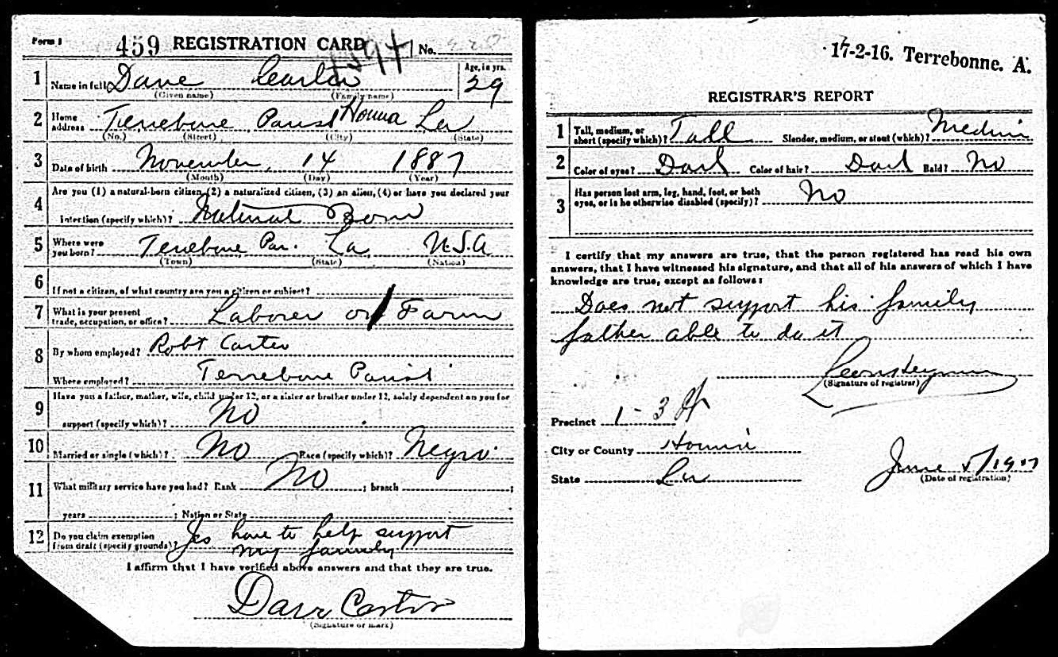 Form 1 459 REGISTRATION CARD No.
1 Name in full Dave Carter Age, in yrs. 29
(Given name) (Family name)
2 Home address Terrebone Parish Houma La
(No.) (Street) (City) (State)
3 Date of birth November 14 1887
(Month) (Day) (Year)
4 Are you (1) a natural-born citizen, (2) a naturalized citizen, (3) an alien, (4) or have you declared your
intention (specify which)? Natural Born
5 Where were you born? Terrebone Par. La USA
(Town) (State) (Nation)
6 If not a citizen, of what country are you a citizen or subject?
7 What is your present trade, occupation, or office? Laborer on Farm
8 By whom employed? Robt Carter
Where employed? Terrebone Parish
9 Have you a father, mother, wife, child under 12, or a sister or brother under 12, solely dependent on you for
support (specify which)? No
10 Married or single (which)? No Race (specify which)? Negro
11 What military service have you had? Rank No ; branch ;
years ; Nation or State
12 Do you claim exemption from draft (specify grounds)? Yes have to help support
my family
I affirm that I have verified above answers and that they are true.
Dave Carter
(Signature or mark)
17-2-16. Terrebonne. A.
REGISTRAR'S REPORT
1 Tall, medium, or short (specify which)? Tall Slender, medium, or stout (which)? Medium
2 Color of eyes? Dark Color of hair? Dark Bald? No
3 Has person lost arm, leg, hand, foot, or both eyes, or is he otherwise disabled (specify)? No
I certify that my answers are true, that the person registered has read his own
answers, that I have witnessed his signature, and that all of his answers of which I have
knowledge are true, except as follows:
Does not support his family
father able to do it
(Signature of registrar)
Precinct 1-3
City or County Houma
State La
June 5/1917
(Date of registration)